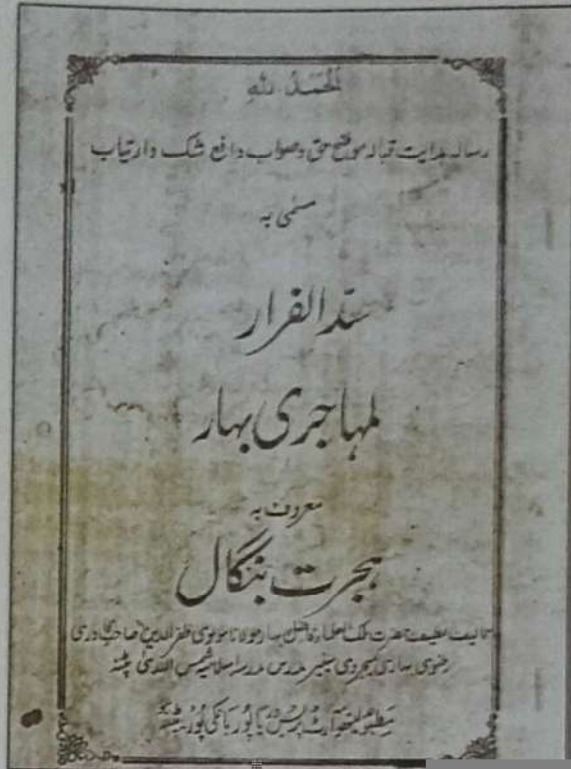 الحمد لله
رسالہ ہدایت قبالہ موضح حق و صواب دافع شک و ارتیاب
مسمی بہ
سد الفرار
لمہاجری بہار
معروف بہ
ہجرت بنگال
تالیف لطیف حضرت ملک العلماء فاضل بہار مولانا مولوی ظفر الدین صاحب قادری
رضوی بہاری میجروی سینیر مدرس مدرسہ اسلامیہ شمس الہدیٰ پٹنہ
مطبوعہ لیتھو آرٹ پریس بانکی پور پٹنہ